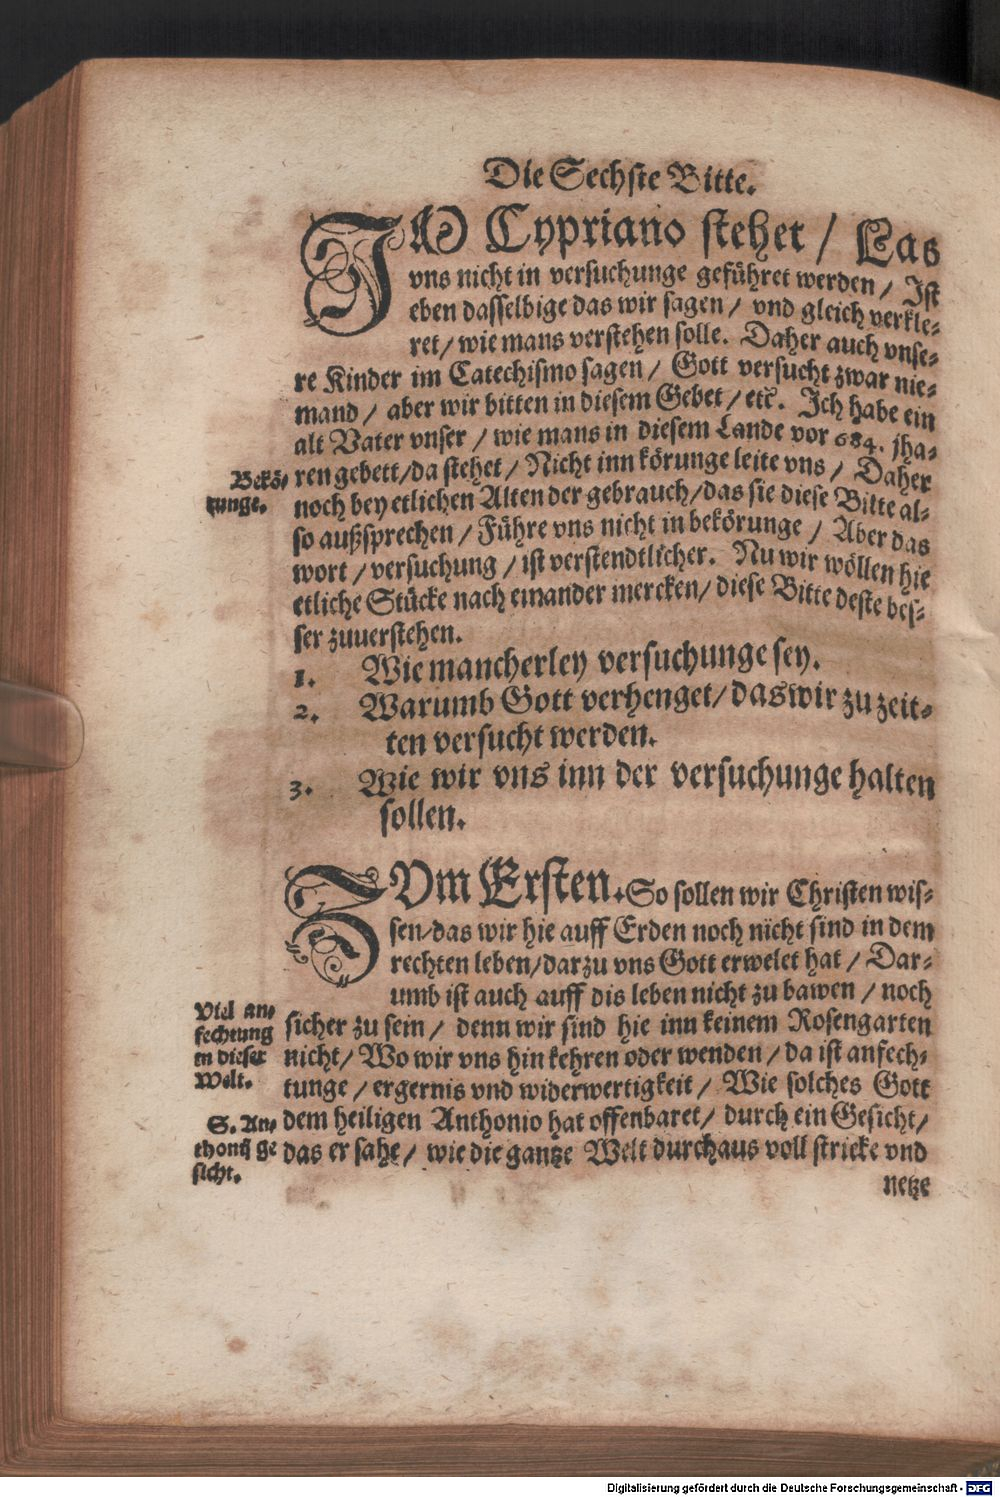 Die Sechste Bitte.
IN Cypriano stehet / Las
vns nicht in versuchunge geführet werden / Ist
eben dasselbige das wir sagen / vnd gleich verkle-
ret / wie mans verstehen solle. Daher auch vnse-
re Kinder im Catechismo sagen / Gott versucht zwar nie-
mand / aber wir bitten in diesem Gebet / etc. Ich habe ein
alt Vater vnser / wie mans in diesem Lande vor 684. jha-
ren gebett / da stehet / Nicht inn körunge leite vns / Daher
noch bey etlichen Alten der gebrauch / das sie diese Bitte al-
so außsprechen / Führe vns nicht in bekörunge / Aber das
wort / versuchung / ist verstendtlicher. Nu wir wöllen hie
etliche Stücke nach einander mercken / diese Bitte deste bes-
ser zuuerstehen.
Bekö-
runge.
1. Wie mancherley versuchunge sey.
2. Warumb Gott verhenget / das wir zu zeit-
ten versucht werden.
3. Wie wir vns inn der versuchunge halten
sollen.
ZVm Ersten. So sollen wir Christen wis-
sen / das wir hie auff Erden noch nicht sind in dem
rechten leben / darzu vns Gott erwelet hat / Dar-
umb ist auch auff dis leben nicht zu bawen / noch
sicher zu sein / denn wir sind hie inn keinem Rosengarten
nicht / Wo wir vns hin kehren oder wenden / da ist anfech-
tunge / ergernis vnd widerwertigkeit / Wie solches Gott
dem heiligen Anthonio hat offenbaret / durch ein Gesicht /
das er sahe / wie die gantze Welt durchaus voll stricke vnd
netze
Viel an-
fechtung
in dieser
Welt.
S. An-
thonij ge
sicht.
Digitalisierung gefördert durch die Deutsche Forschungsgemeinschaft - DFG